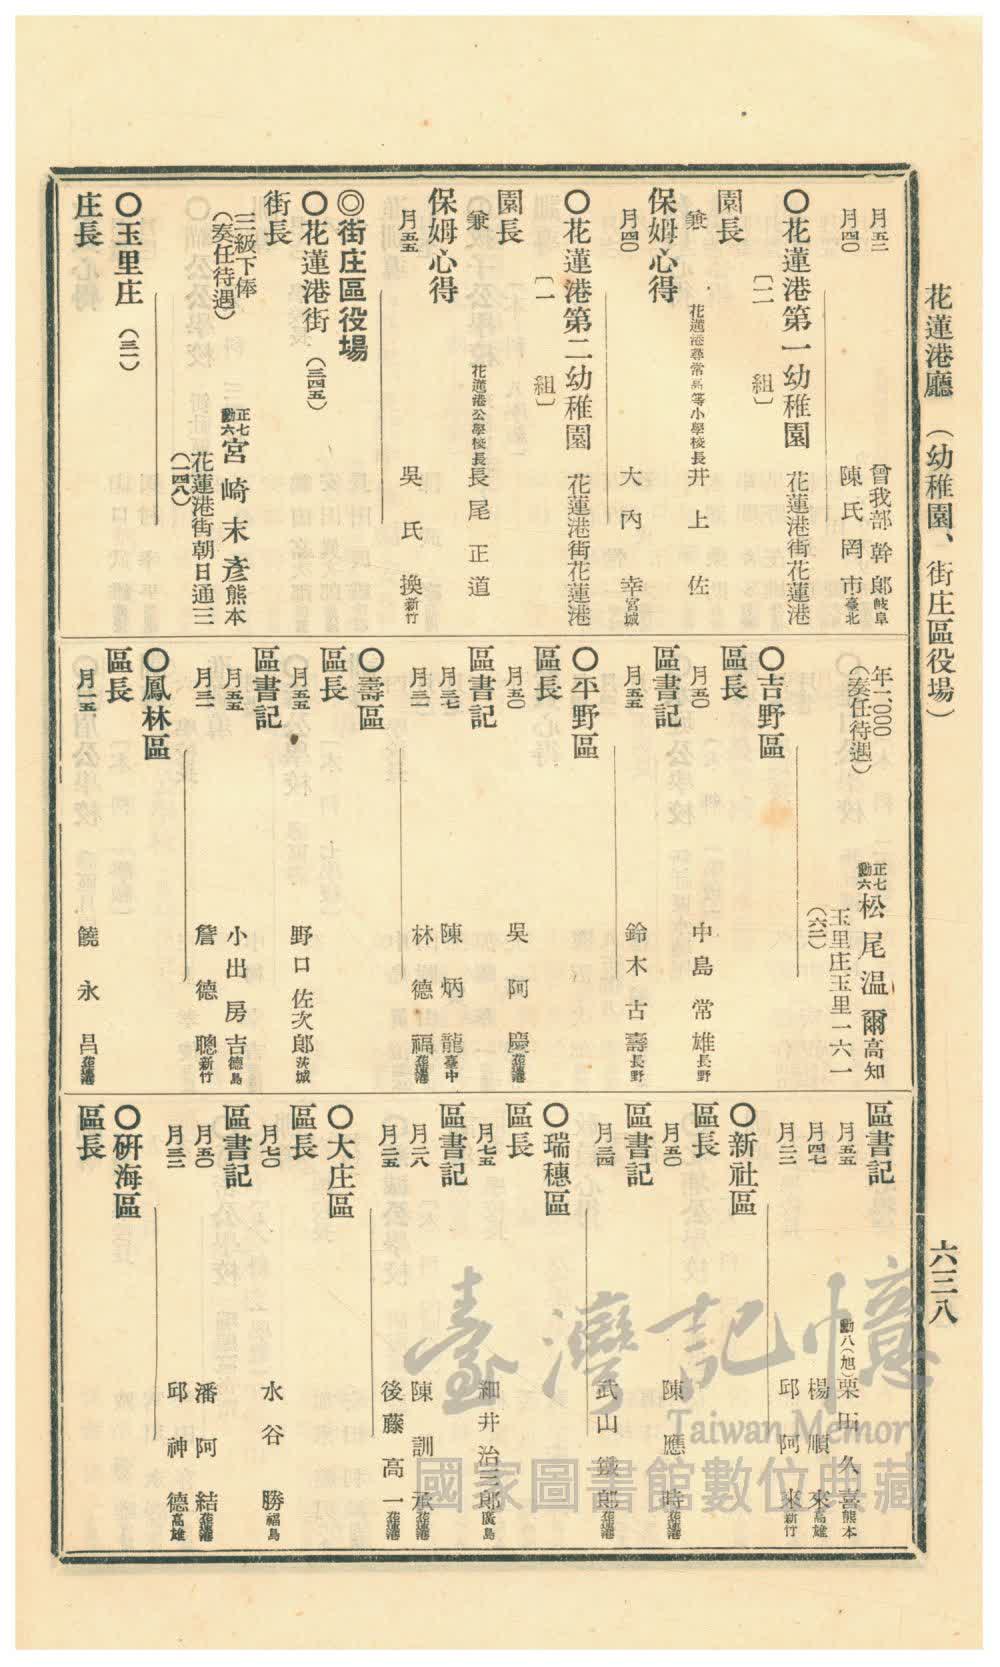 花蓮港廳 （幼稚園、街庄區役場） 六三八
月五二 曾我部幹郎 岐阜
月四〇 陳氏罔市 臺北
〇花蓮港第一幼稚園 花蓮港街花蓮港
〔二組〕
園長
兼 花蓮港尋常高等小學校長 井上佐
保姆心得
月四〇 大內幸 宮城
〇花蓮港第二幼稚園 花蓮港街花蓮港
〔一組〕
園長
兼 花蓮港公學校長 長尾正道
保姆心得
月五五 吳氏換 新竹
◎街庄區役場
〇花蓮港街（三四五）
街長
三級下俸
（奏任待遇） 正七勳六 宮崎末彥 熊本
花蓮港街朝日通三
（一四八）
〇玉里庄（三一）
庄長
年二、〇〇〇
（奏任待遇） 正七勳六 松尾溫爾 高知
玉里庄玉里一六一
（六二）
〇吉野區
區長
月五〇 中島常雄 長野
區書記
月五五 鈴木古壽 長野
〇平野區
區長
月五〇 吳阿慶 花蓮港
區書記
月三七 陳炳龍 臺中
月三二 林德福 花蓮港
〇壽區
區長
月五五 野口佐次郎 茨城
區書記
月五五 小出房吉 德島
月三二 詹德聰 新竹
〇鳳林區
區長
月一五 饒永昌 花蓮港
區書記
月五五 勳八（旭） 栗山久喜 熊本
月四七 楊順來 高雄
月三二 邱阿來 新竹
〇新社區
區長
月五〇 陳應時 花蓮港
區書記
月三四 武山鐵郎 花蓮港
〇瑞穗區
區長
月七五 細井治三郎 廣島
區書記
月二八 陳訓承 花蓮港
月二五 後藤高一 花蓮港
〇大庄區
區長
月七〇 水谷勝 福島
區書記
月五〇 潘阿結 花蓮港
月三二 邱神德 高雄
〇研海區
區長
臺灣記憶
Taiwan Memory
國家圖書館數位典藏